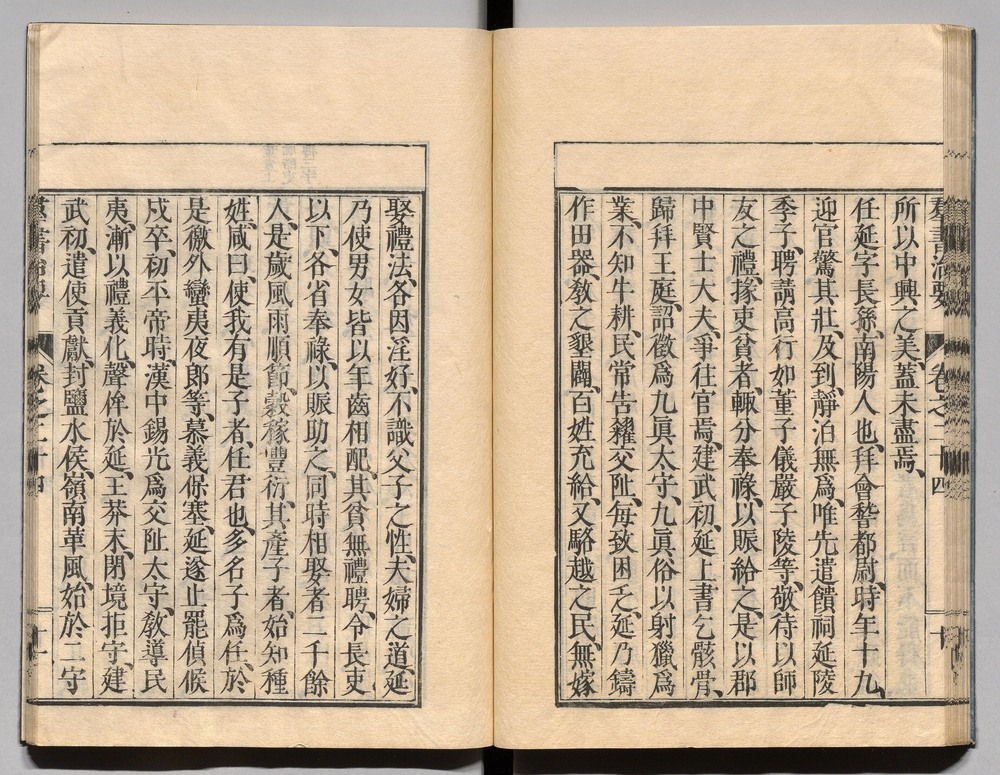 羣書治要 卷之二十四 十
所以中興之美、蓋未盡焉、
任延字長孫、南陽人也、拜會稽都尉、時年十九、
迎官驚其壯、及到、靜泊無爲、唯先遣饋祠延陵
季子、聘請高行如董子儀嚴子陵等、敬待以師
友之禮、掾吏貧者、輙分奉祿、以賑給之、是以郡
中賢士大夫、爭往官焉、建武初、延上書乞骸骨、
歸拜王庭、詔徵爲九眞太守、九眞俗以射獵爲
業、不知牛耕、民常告糴交阯、每致困乏、延乃鑄
作田器、敎之墾闢、百姓充給、又駱越之民、無嫁
娶禮法、各因淫好、不識父子之性、夫婦之道、延
乃使男女皆以年齒相配、其貧無禮聘、令長吏
以下、各省奉祿、以賑助之、同時相娶者二千餘
人、是歲風雨順節、穀稼豐衍、其產子者、始知種
姓、咸曰、使我有是子者、任君也、多名子爲任、於
是徼外蠻夷夜郎等、慕義保塞、延遂止罷偵候
戍卒、初平帝時、漢中錫光爲交阯太守、敎導民
夷、漸以禮義化、聲侔於延、王莽末、閉境拒守、建
武初、遣使貢獻、封鹽水侯、嶺南華風、始於二守
羣書治要 卷之二十四 十一